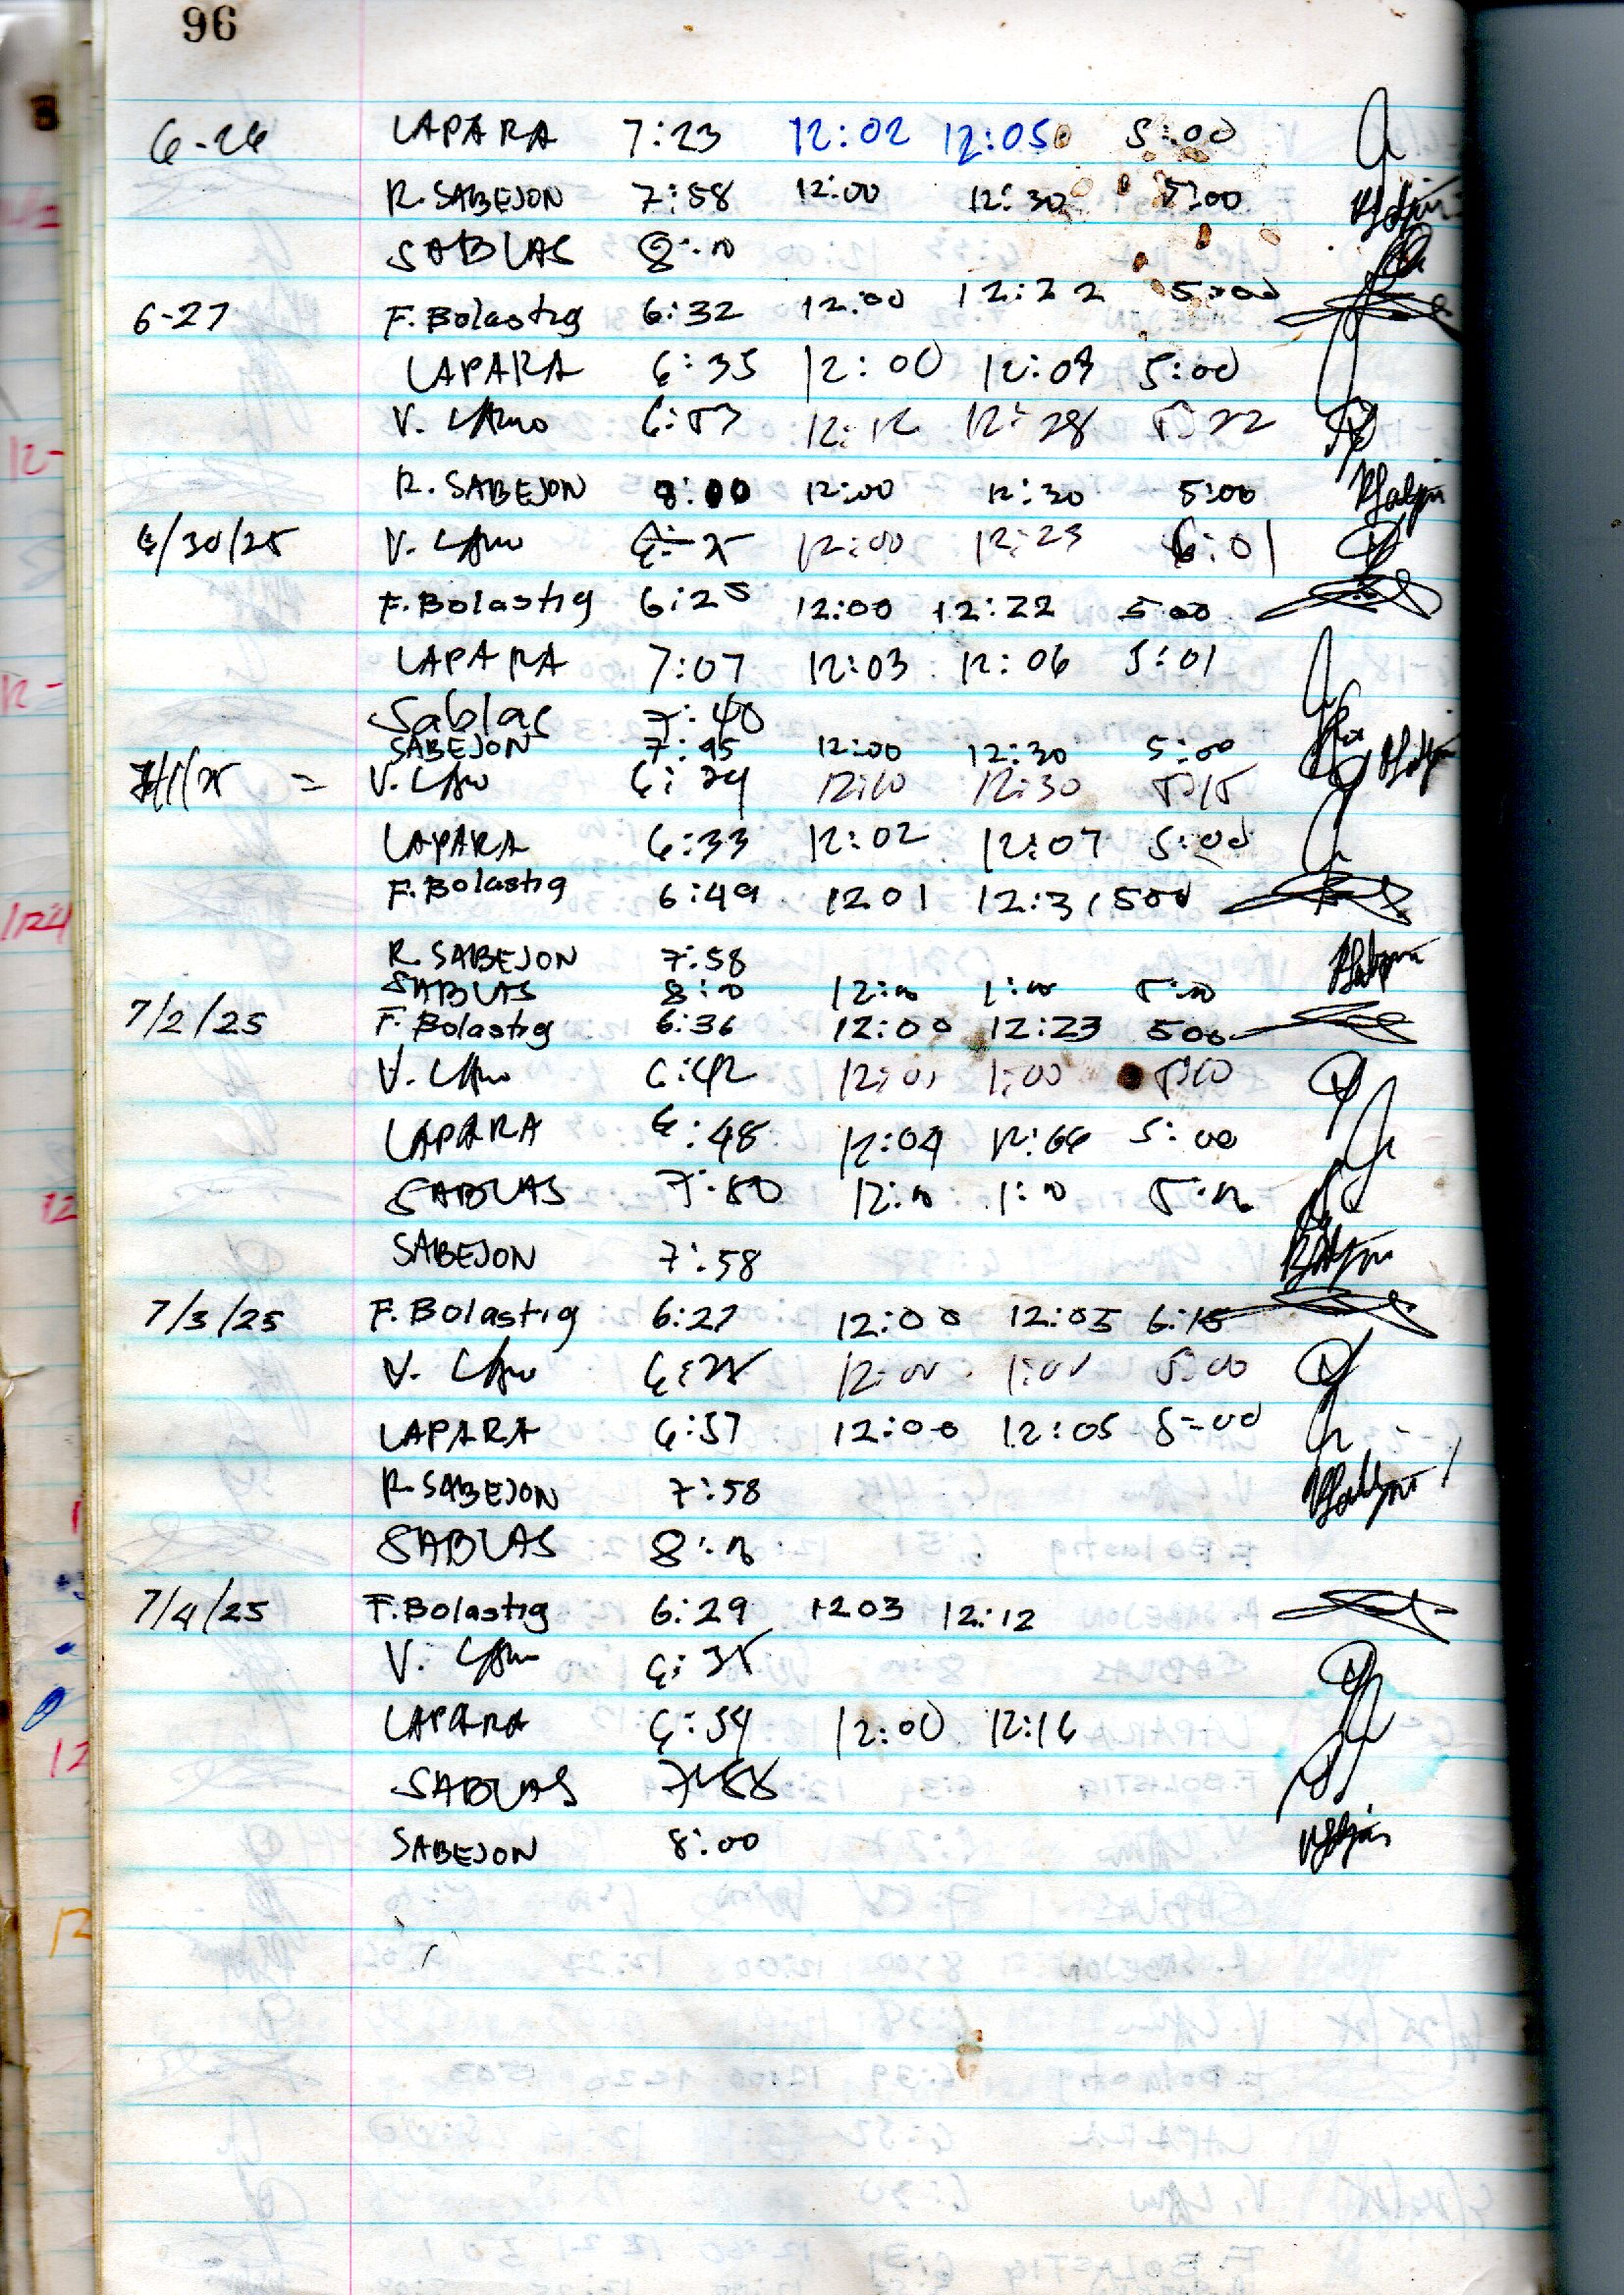 96
6-26 LAPARA 7:23 12:02 12:05 5:00
R. SABEJON 7:58 12:00 12:30 5:00
SABLAS 8:00
6-27 F. Bolastig 6:32 12:00 12:22 5:00
LAPARA 6:35 12:00 12:09 5:00
V. 6:53 12:12 12:28 5:22
R. SABEJON 8:00 12:00 12:30 5:00
6/30/25 V. 12:00 12:23 6:01
F. Bolastig 6:25 12:00 12:22 5:00
LAPARA 7:07 12:03 12:06 5:01
Sablas 7:40
SABEJON 7:45 12:00 12:30 5:00
7/1/25 = V. 6:29 12:10 12:30 5:15
LAPARA 6:33 12:02 12:07 5:00
F. Bolastig 6:49 12 01 12:31 500
R. SABEJON 7:58
SABLAS 8:00 12:00 1:00 5:00
7/2/25 F. Bolastig 6:36 12:00 12:23 500
V. 6:42 12:01 1:00 5:10
LAPARA 6:48 12:04 12:06 5:00
SABLAS 7:50 12:00 1:00 5:00
SABEJON 7:58
7/3/25 F. Bolastig 6:27 12:00 12:05 6:15
V. 6:25 12:00 1:00 5:00
LAPARA 6:57 12:00 12:05 5:00
R. SABEJON 7:58
SABLAS 8:00
7/4/25 F. Bolastig 6:29 1203 12:12
V. 6:35
LAPARA 6:54 12:00 12:16
SABLAS 7:58
SABEJON 8:00